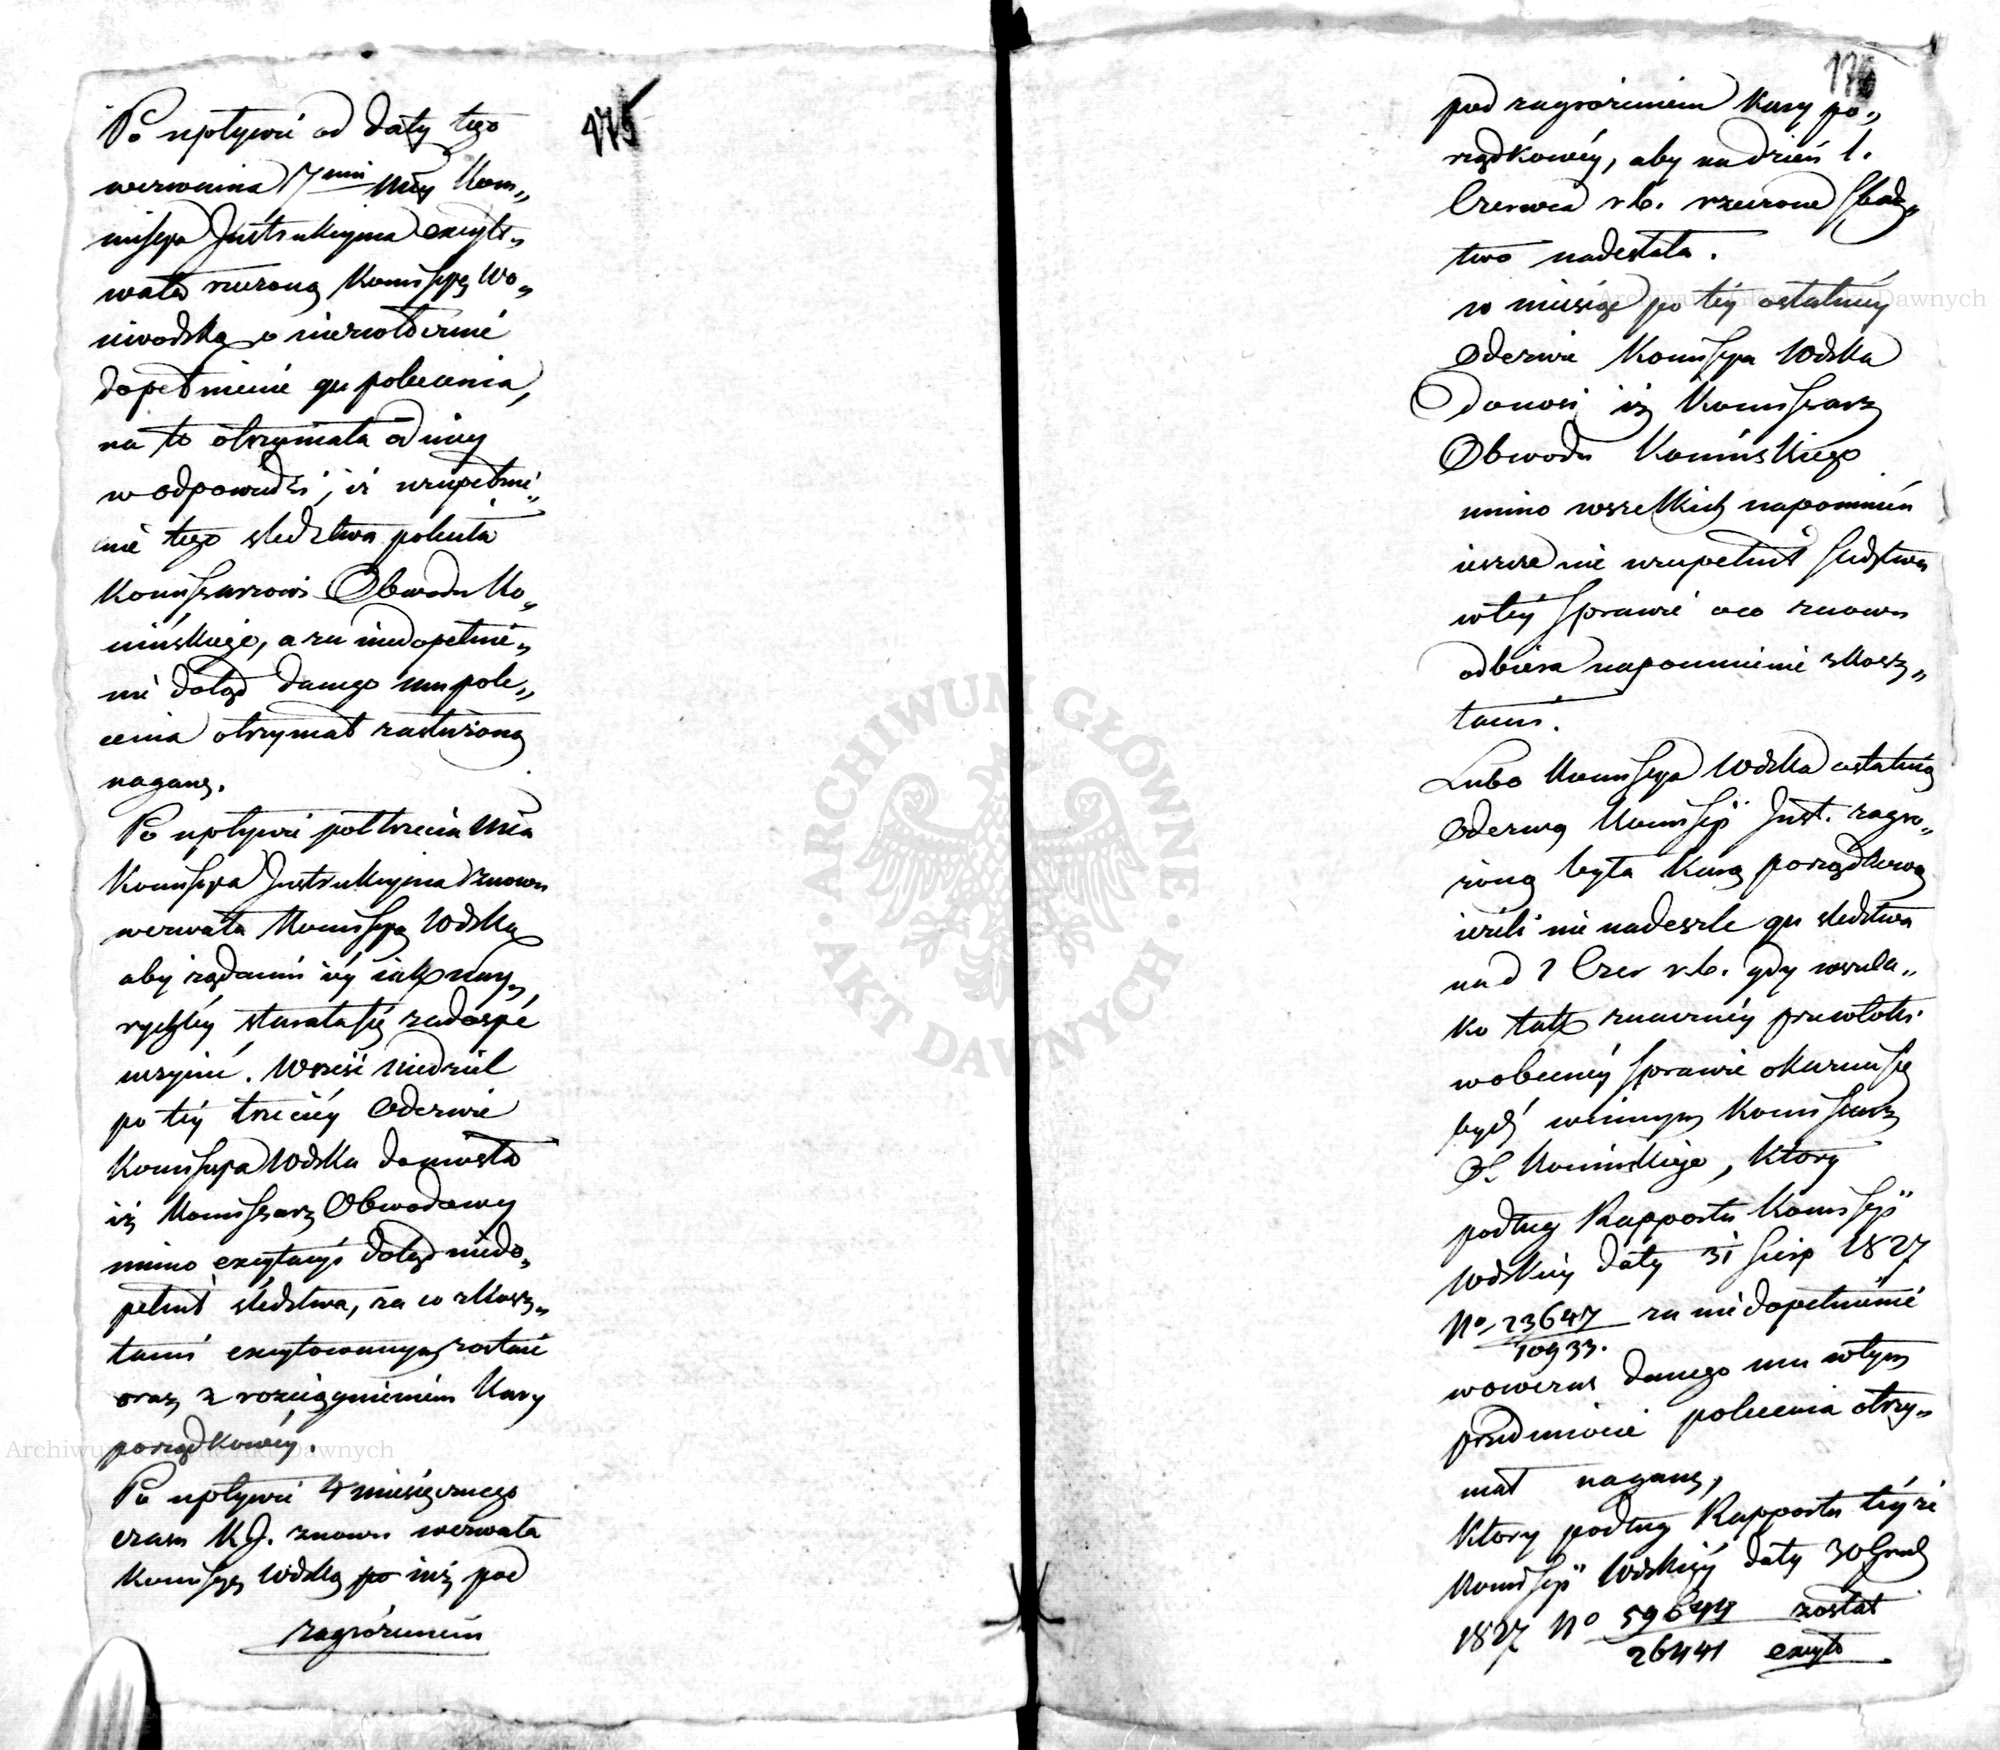 175
Po upływie od daty tego
wezwania 17 mcy Kom„
missya Instrukcyina excyto„
wała rzeczoną Kommissyę Wo„
iewodzką o niezwłoczne
dopełnienie gu polecenia,
na to otrzymała od niey
w odpowiedzi, iż uzupełnie„
nie tego śledztwa poleciła
Kommissarzowi Obwodu Ko„
nińskiego, a za niedopełnie„
nie dotąd danego mu pole„
cenia otrzymał zasłużoną
naganę.
Po upływie półtrzecia Mca
Kommissya Instrukcyina znowu
wezwała Kommissyę Wdzką
aby żądaniu iéy iak nay„
rychléy starała się zadosyć
uczynić. W sześć niedziel
po téy trzeciéy Odezwie
Kommissya Wdzka doniosła
iż Kommissarz Obwodowy
mimo excytacyi dotąd niedo„
pełnił śledztwa, za co z kosz„
tami excytowanym zostanie
oraz z rozciągnieniem Kary
porządkowéy.
Po upływie 4 miesięcznego
czasu K J. znowu wezwała
Kommissyę Wdzką po iuż pod
zagrożeniem
176
pod zagrożeniem Kary po„
rządkowéy, aby na dzień 1.
Czerwca r b. rzeczone śledz„
two nadesłała.
w miesiąc po téy ostatniéy
Odezwie Kommissya Wdzka
Donosi iż Kommissarz
Obwodu Konińskiego
mimo wszelkich napomnień
ieszcze nie uzupełnił śledztwa
w téy sprawie oco znowu
odbiera napomnienie z kosz„
tami.
Lubo Kommissya Wdzka ostatnią
Odezwą Kommissyi Inst. zagro„
żoną była Karą porządkową
ieżeli nie nadeszle gu śledztwa
na d 1 Czer r. b. gdy wszela„
ko tak znaczney przewłoki
w obecnéy sprawie okazuie się
bydź winnym Kommissarz
O. Konińskiego, który
podług Rapportu Kommissyi
Wdzkiéy daty 31 Sierp 1827
No 23647 za niedopełnienie
10933.
wowczas danego mu w tym
przedmiocie polecenia otrzy„
mał naganę,
Który podług Rapportu téyże
Kommissyi Wdzkiéy daty 30 Grud
1827 No 59644 został
26441 excyto